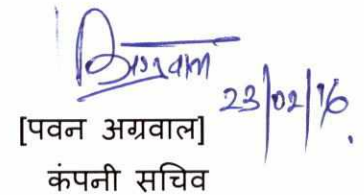 अग्रवाल
23/02/16
[पवन अग्रवाल]
कंपनी सचिव